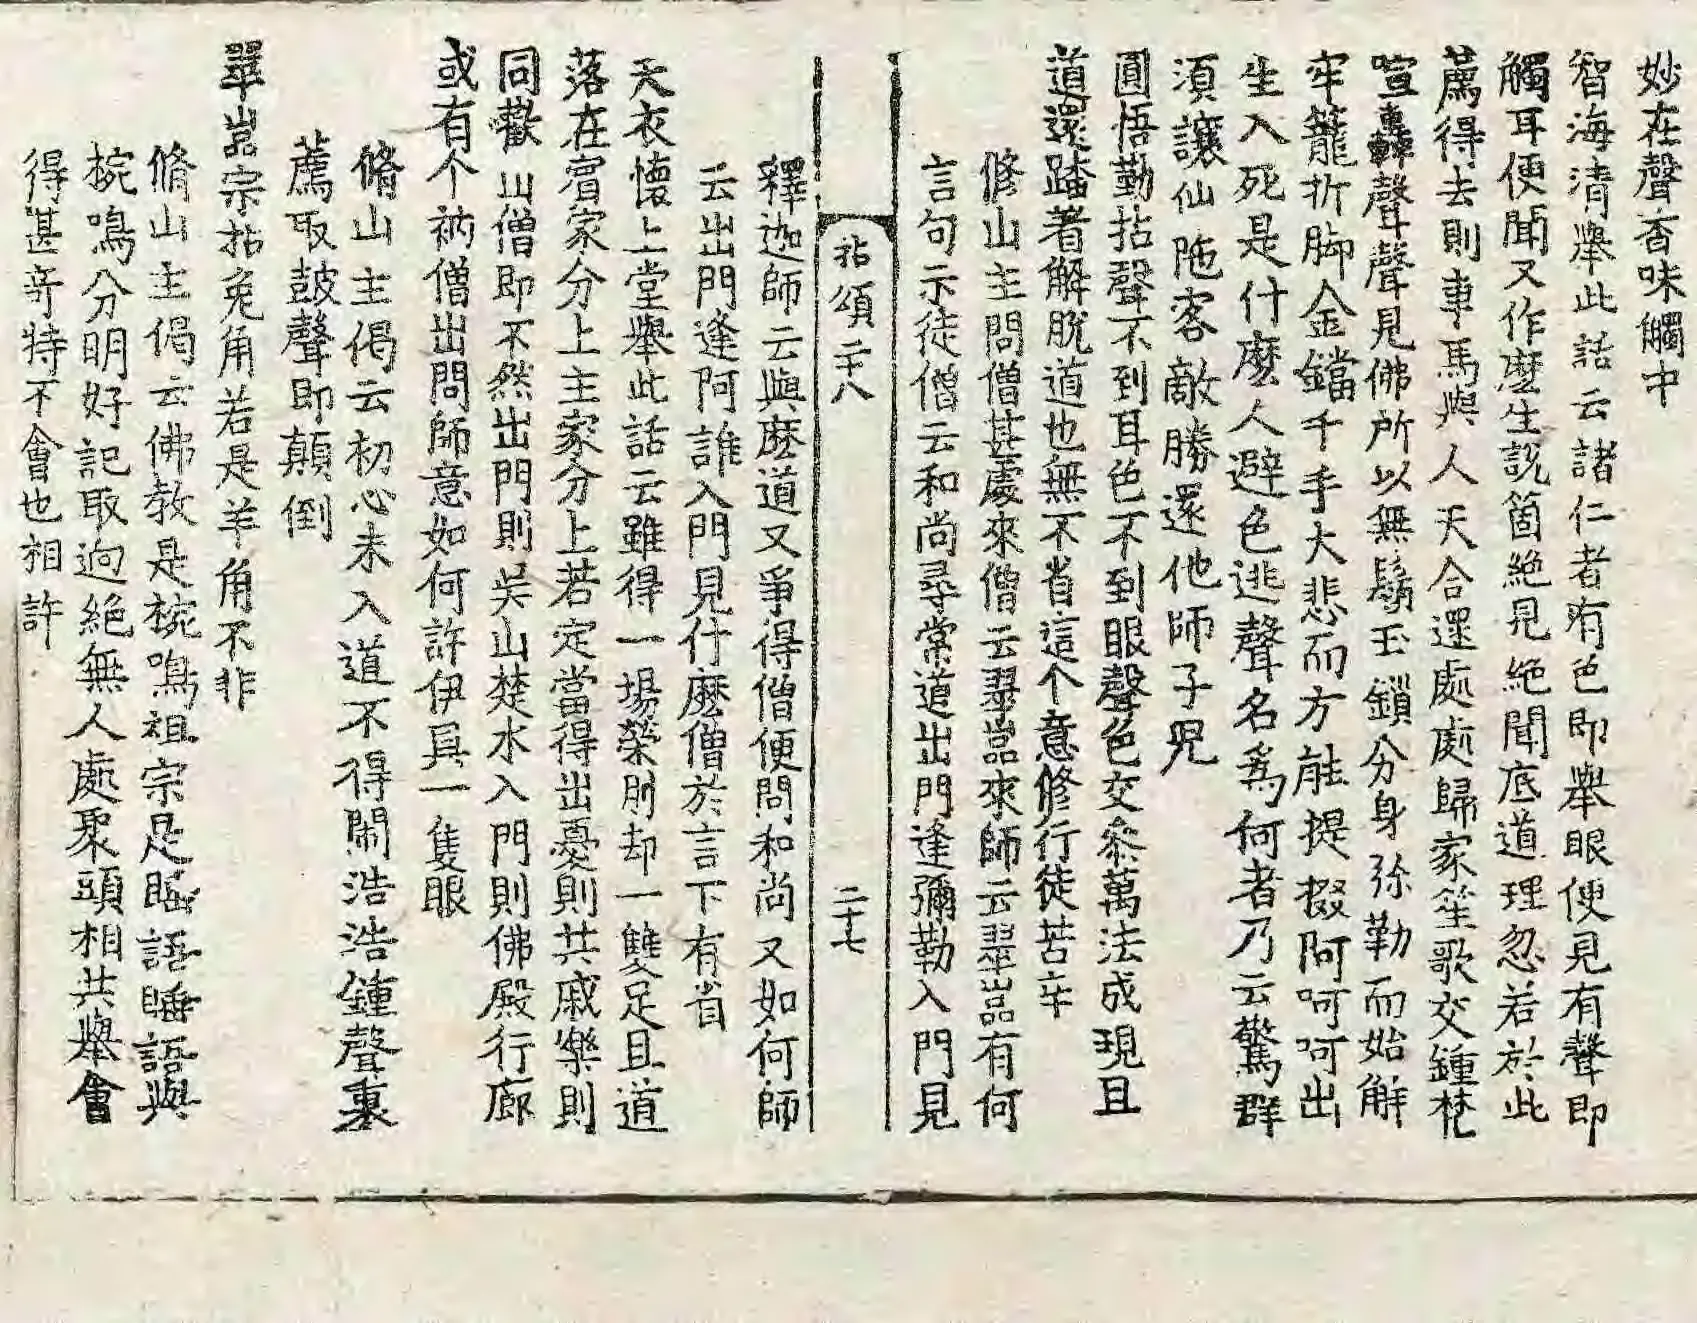 妙在聲香味觸中
智海清舉此話云諸仁者有色即舉眼便見有聲即
觸耳便聞又作麽生說箇絶見絶聞底道理忽若於此
薦得去則車馬與人天合還處處歸家笙歌交鍾梵
喧轟聲聲見佛所以無鬚玉鎖分身弥勒而始解
牢籠折脚金鐺千手大悲而方能提掇阿呵呵出
生入死是什麽人避色逃聲名爲何者乃云驚群
須讓仙陁客敵勝還他師子兒
圓悟勤拈聲不到耳色不到眼聲色交叅萬法成現且
道還踏著解脫道也無不省這个意修行徒苦辛
修山主問僧甚處來僧云翠嵓來師云翠嵓有何
言句示徒僧云和尚尋常道出門逢彌勒入門見
拈頌二十八
二十七
釋迦師云與麽道又爭得僧便問和尚又如何師
云出門逢阿誰入門見什麽僧於言下有省
天衣懷上堂舉此話云雖得一場榮刖却一雙足且道
落在賓家分上主家分上若定當得出憂則共戚樂則
同歡山僧即不然出門則吳山楚水入門則佛殿行廊
或有个衲僧出問師意如何許伊具一隻眼
脩山主偈云初心未入道不得閙浩浩鍾聲裏
薦取鼓聲即顛倒
翠嵓宗拈兔角若是羊角不非
脩山主偈云佛教是椀鳴祖宗是瞌語瞌語與
椀鳴分明好記取逈絶無人處聚頭相共舉會
得甚奇特不會也相許